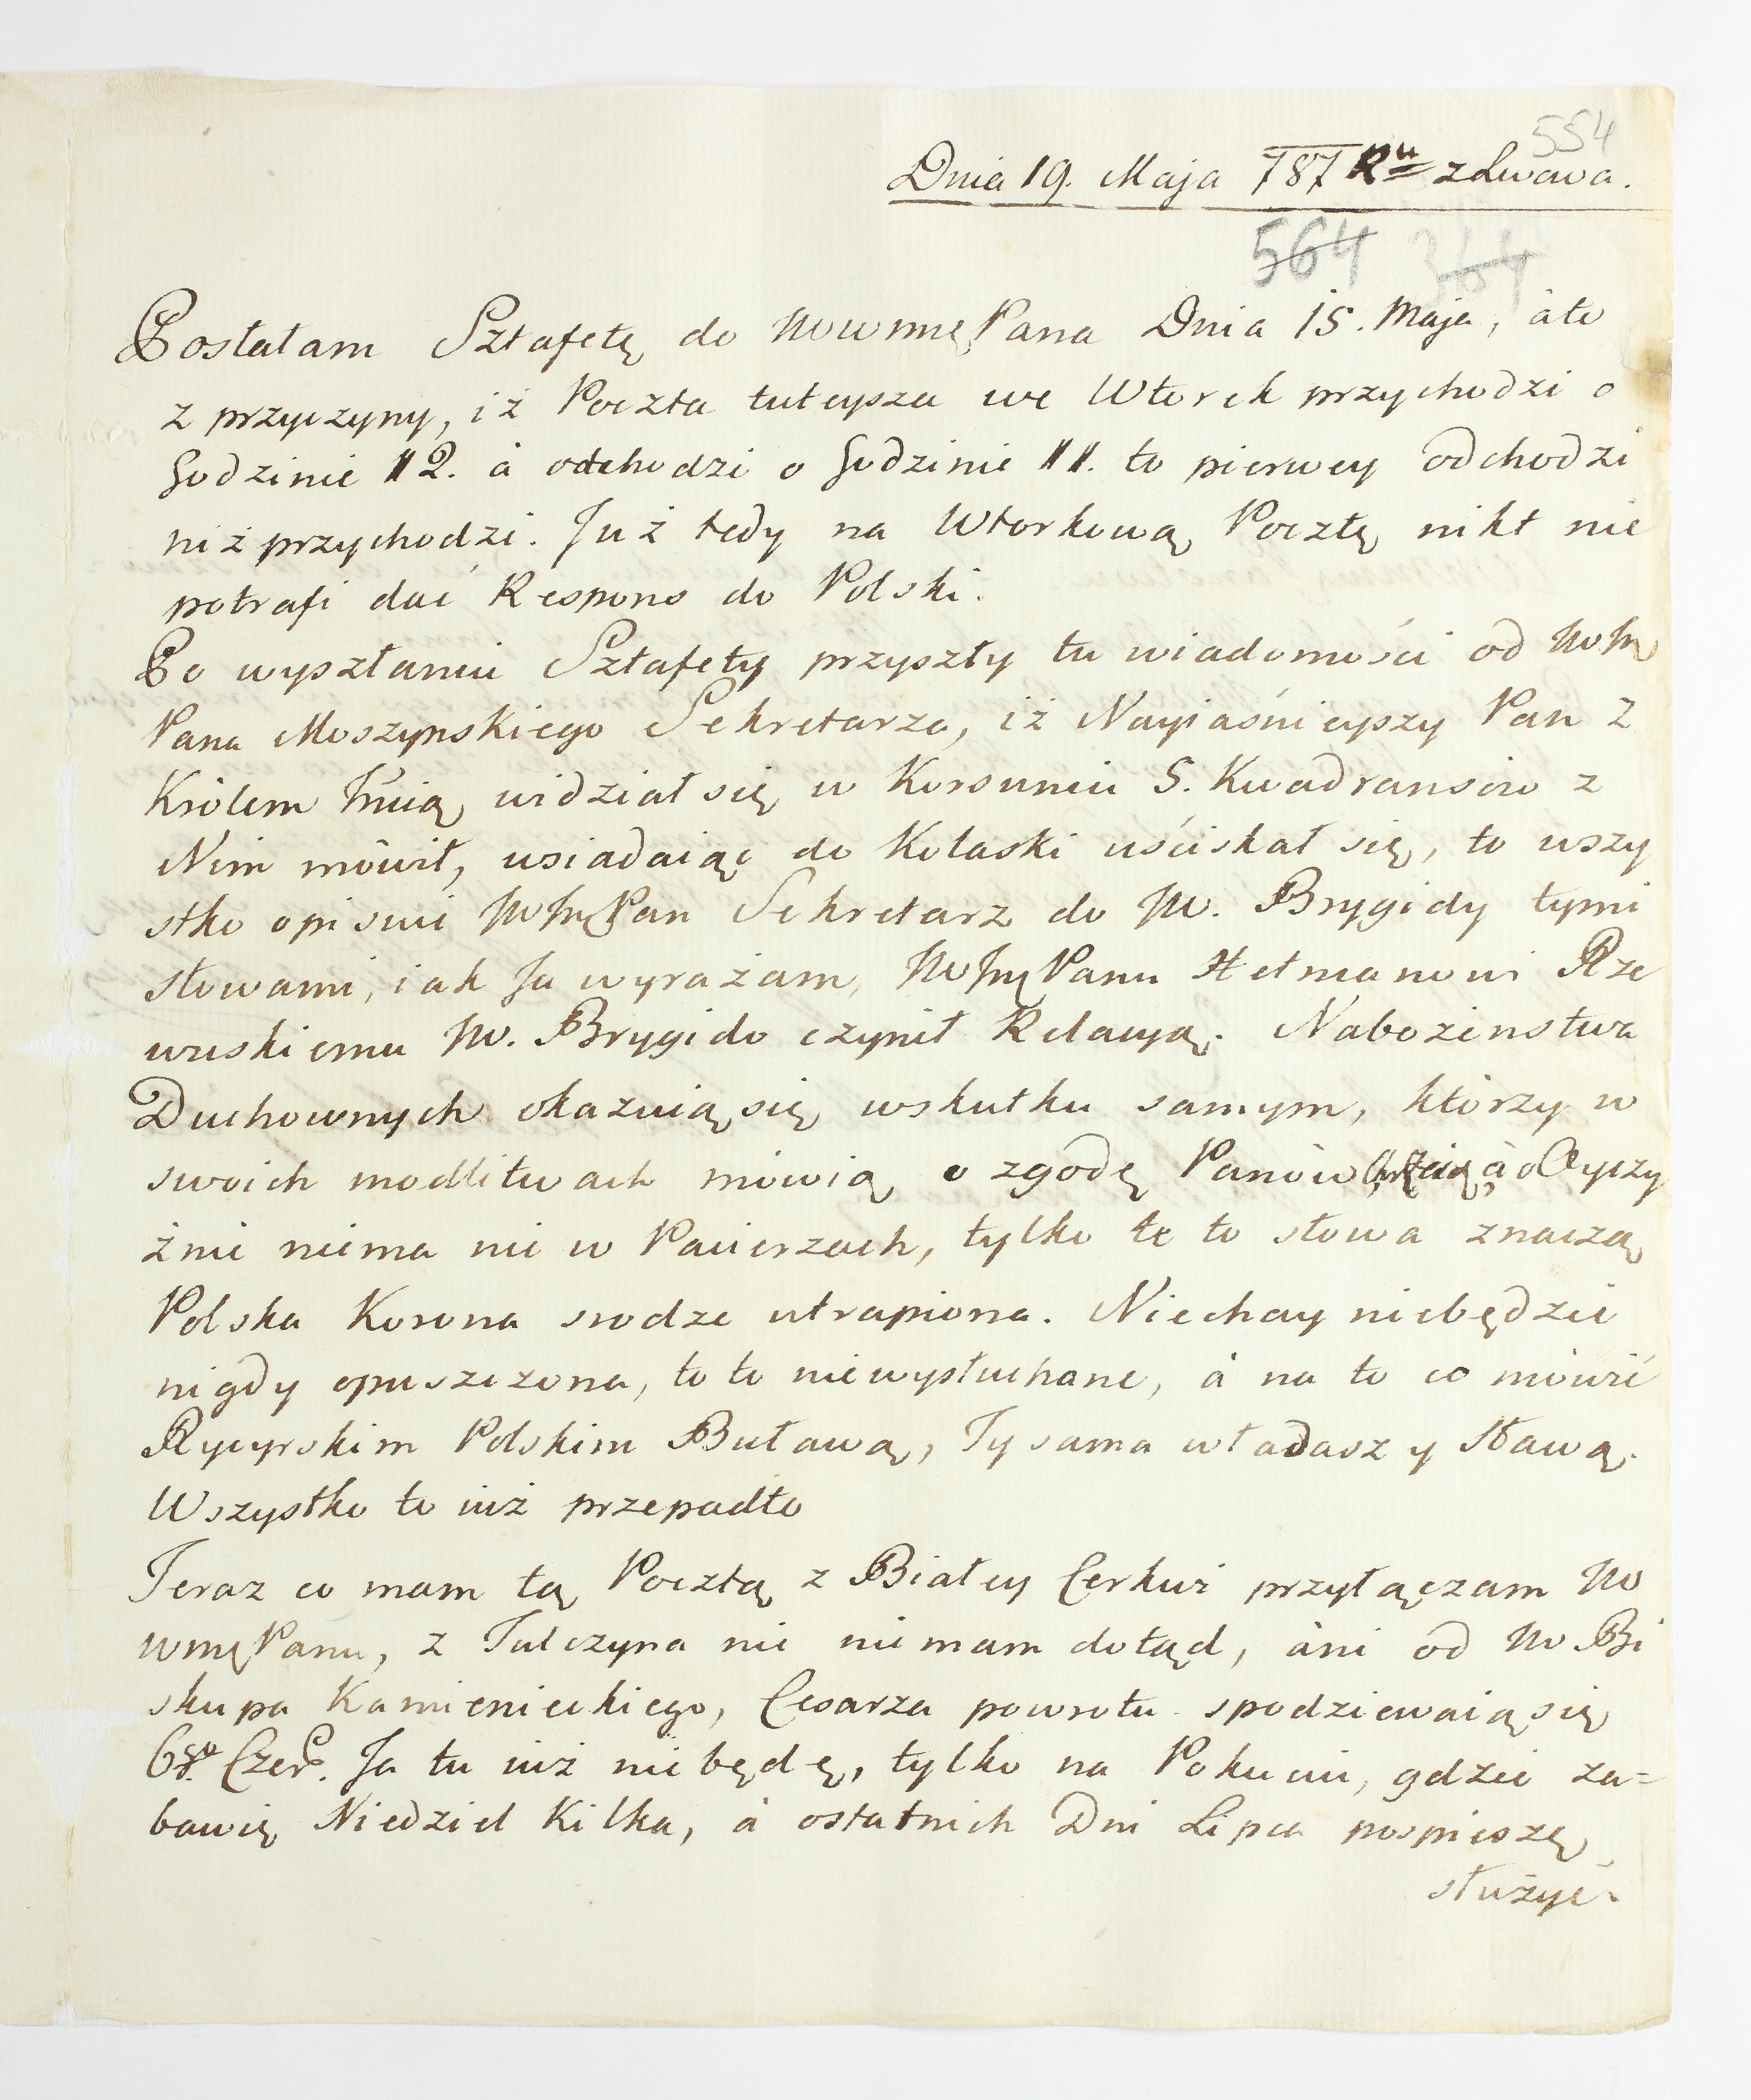 554
Dnia 19. Maja 787 Ru z Lwowa.
564
Posłałam Sztafetę do WoWmę Pana Dnia 15. Maja, áto
z przyczyny, iż Poczta tuteysza we Wtorek przychodzi o
Godzinie 12. á odchodzi o Godzinie 11. to pierwey odchodzi
niż przychodzi. Już tedy na Wtorkową Pocztę nikt nie
potrafi dać Respons do Polski.
Po wysztaniu Sztafety przyszły tu wiadomości od
Pana Moszynskiego Sekretarza, iż Nayiaśnieyszy Pan z
Królem Jmią widział się w Korsuniu 5. Kwadransów z
Nim mówił, wsiadaiąc do Kolaski uściskał się, to wszy
stko opisui Pan Sekretarz do W. Brygidy tymi
słowami, iak Ja wyrażam, Panu Hetmanowi Rze
wuskiemu W. Brygido czynił Relacyą. Nabożenstwa
Duchownych okazuią się wskutku samym, którzy w
swoich modlitwach mówią o zgodę Panów á o Oyczy
źnie niema nic w Pacierzach, tylko te to słowa znaczą
Polska Korona srodze utrapiona. Niechay niebędzie
nigdy opuszczona, to to niewysłuchane, á na to co mówić
Rycyrskim Polskim Buławą, Ty sama władasz y Sławą.
Wszystko to iuż przepadło
Teraz co mam tą Pocztą z Białey Cerkwi przyłączam Wo
Wmę Panu, z Tulczyna nic niemam dotąd, áni od W Bi
skupa Kamienieckiego, Cesarza powrotu spodziewaią się
6go Czer. Ja tu iuż niebędę, tylko na Pokuciu, gdzie za=
bawię Niedziel Kilka, á ostatnich Dni Lipca pospieszę
służyć